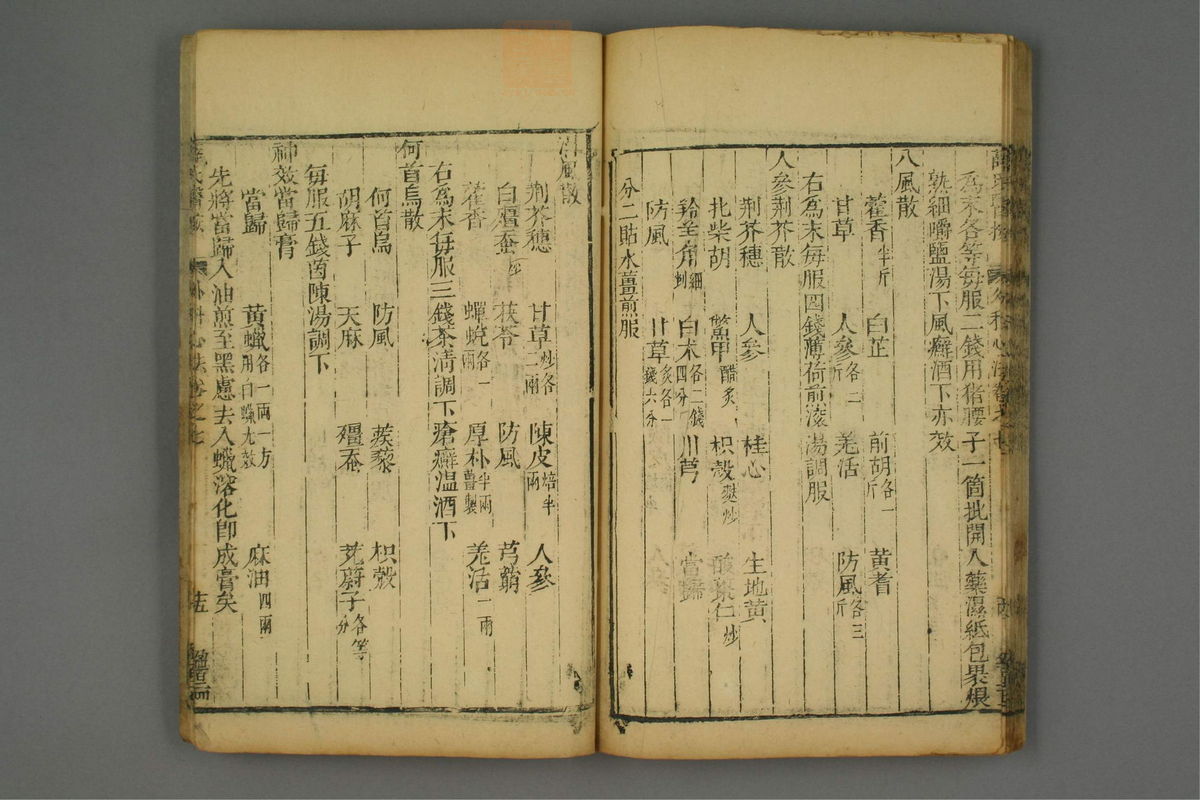 為末各等每服二錢用猪腰子一箇批開入藥濕紙包裹煨
熟細嚼鹽湯下風癬酒下亦效
八風散
藿香半斤 白芷 前胡各一斤 黄耆
甘草 人參各二斤 羌活 防風各三斤
右為末每服四錢薄荷煎滚湯調服
人參荆芥散
荆芥穗 人參 桂心 生地黄
北柴胡 鱉甲醋炙 枳殼麩炒 酸棗仁炒
羚羊角細剉 白朮各二錢四分 川芎 當歸
防風 甘草炙各一錢六分
分二貼水薑煎服
消風散
荆芥穗 甘草炒各二兩 陳皮焙半兩 人參
白殭蚕炒 茯苓 防風 芎藭
藿香 蟬蛻各一兩 厚朴半兩薑製 羌活一兩
右為末每服三錢茶清調下瘡癬温酒下
何首烏散
何首烏 防風 蒺藜 枳殼
胡麻子 天麻 殭蚕 茺蔚子各等分
每服五錢茵陳湯調下
神效當歸膏
當歸 黄蠟各一兩一方用白蠟尤效 麻油四兩
先將當歸入油煎至黑濾去入蠟溶化即成膏矣
外科心法卷之七
十五